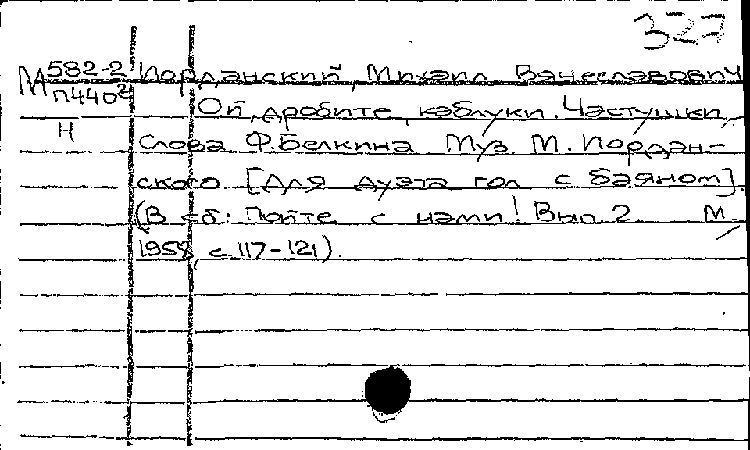 327
М 582-2 Иорданский, Михаил Вячеславович
П440² Ой, дробите, каблуки. Частушки.
Н Слова Ф. Белкина. Муз. М. Иордан-
ского [Для дуэта гол. с баяном].
(В сб: Пойте с нами! Вып 2 М.
1958, с. 117-121).